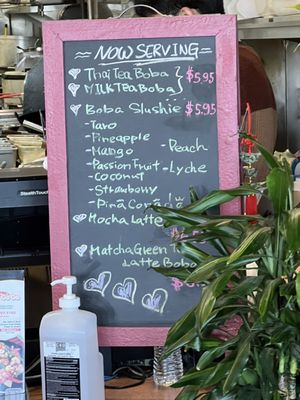 NOW SERVING
Thai Tea Boba
Milk Tea Boba
$5.95
Boba Slushie $5.95
- Taro
- Pineapple
- Mango
- Peach
- Passion Fruit
- Lyche
- Coconut
- Strawberry
- Pina Conada
Mocha Latte
Matcha Green
Latte Boba
$
STEALTH